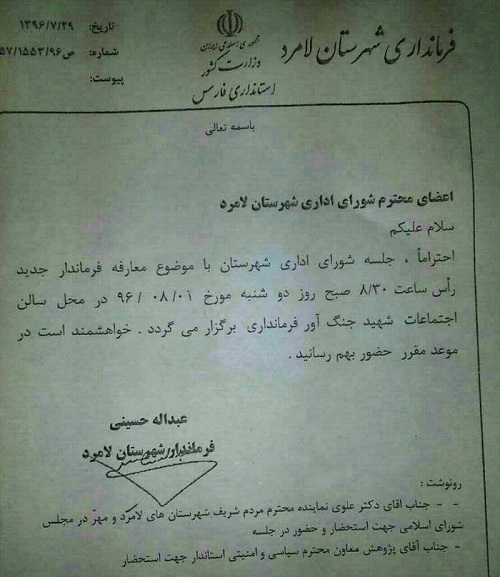 تاریخ: ۱۳۹۶/۷/۲۹
شماره: ص۵۷/۱۵۵۳/۹۶
پیوست:
جمهوری اسلامی ایران
وزارت کشور
استانداری فارس
فرمانداری شهرستان لامرد
باسمه تعالی
اعضای محترم شورای اداری شهرستان لامرد
سلام علیکم
احتراماً ، جلسه شورای اداری شهرستان با موضوع معارفه فرماندار جدید
رأس ساعت ۸/۳۰ صبح روز دو شنبه مورخ ۰۱/ ۰۸ /۹۶ در محل سالن
اجتماعات شهید جنگ آور فرمانداری برگزار می گردد . خواهشمند است در
موعد مقرر حضور بهم رسانید .
عبداله حسینی
فرماندار شهرستان لامرد
رونوشت :
- - جناب اقای دکتر علوی نماینده محترم مردم شریف شهرستان های لامرد و مهر در مجلس
شورای اسلامی جهت استحضار و حضور در جلسه
- جناب آقای پژوهش معاون محترم سیاسی و امنیتی استاندار جهت استحضار